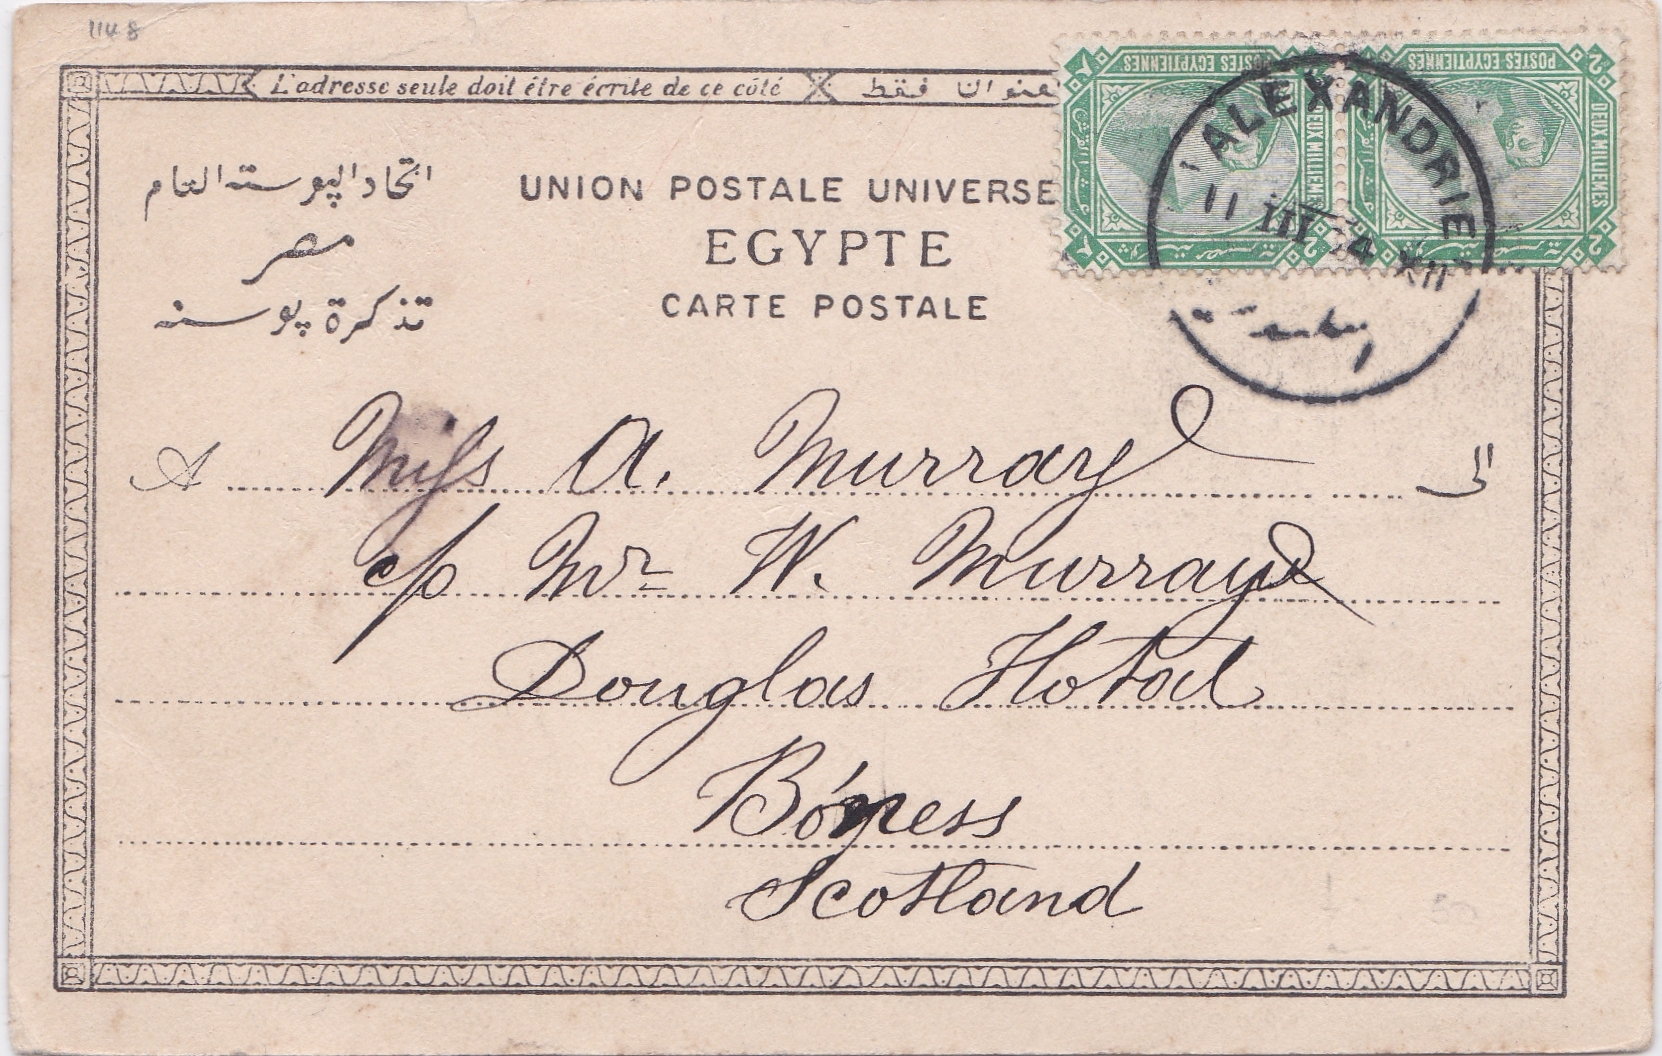 1148
L'adresse seule doit être écrite de ce côté
عنوان فقط
اتحاد البوسته العام
مصر
تذكرة بوسته
UNION POSTALE UNIVERSE
EGYPTE
CARTE POSTALE
POSTES EGYPTIENNES
DEUX MILLIEMES
2
POSTES EGYPTIENNES
DEUX MILLIEMES
2
ALEXANDRIE
11 III 04 XII
A Miss A. Murray الى
c/o Mr W. Murray
Douglas Hotel
Bo'ness
Scotland
50